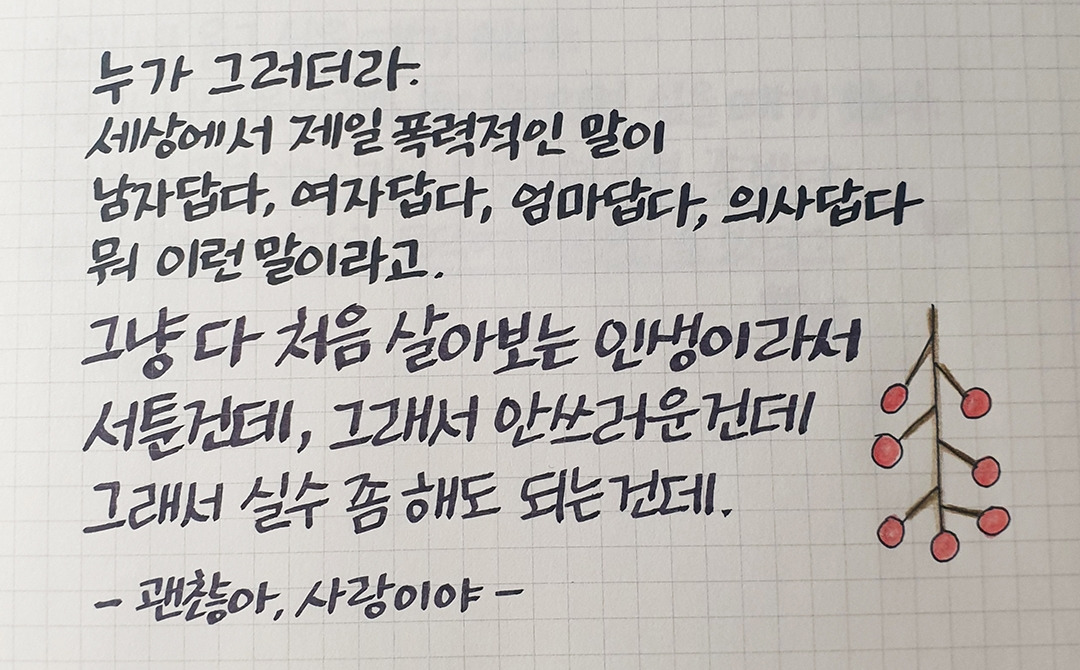 누가 그러더라.
세상에서 제일 폭력적인 말이
남자답다, 여자답다, 엄마답다, 의사답다
뭐 이런 말이라고.
그냥 다 처음 살아보는 인생이라서
서툰건데, 그래서 안쓰러운건데
그래서 실수 좀 해도 되는건데.
- 괜찮아, 사랑이야 -